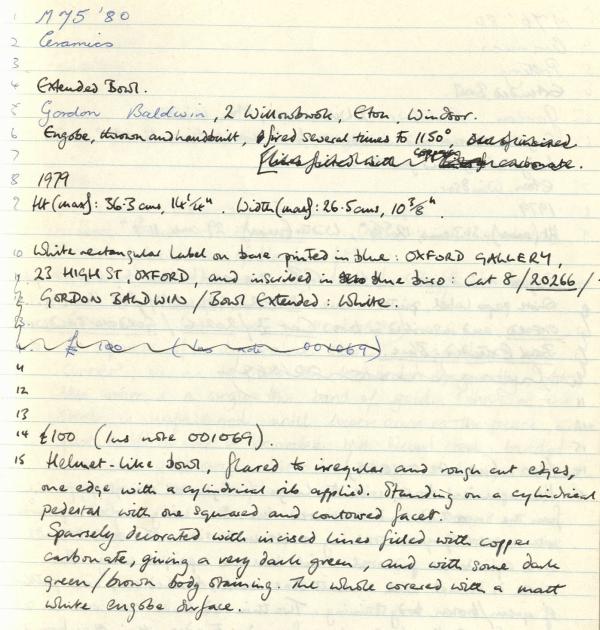 1 M75 '80
2 Ceramics
3
4 Extended Bowl.
5 Gordon Baldwin, 2 Willowbrook, Eton, Windsor.
6 Engobe, thrown and handbuilt, fired several times to 1150°,
7 carbonate.
8 1979
9 Ht (max): 36.3 cms, 14 1/4". Width (max): 26.5 cms, 10 3/8".
10 White rectangular label on base printed in blue: OXFORD GALLERY,
23 HIGH ST, OXFORD, and inscribed in blue biro: Cat 8/20266/-
GORDON BALDWIN / Bowl Extended: White.
£ 100 (Ins note 001069)
11
12
13
14 £100 (Ins note 001069).
15 Helmet-like bowl, flared to irregular and rough cut edges,
one edge with a cylindrical rib applied. Standing on a cylindrical
pedestal with one squared and contoured facet.
Sparsely decorated with incised lines filled with copper
carbonate, giving a very dark green, and with some dark
green/brown body staining. The whole covered with a matt
white engobe surface.